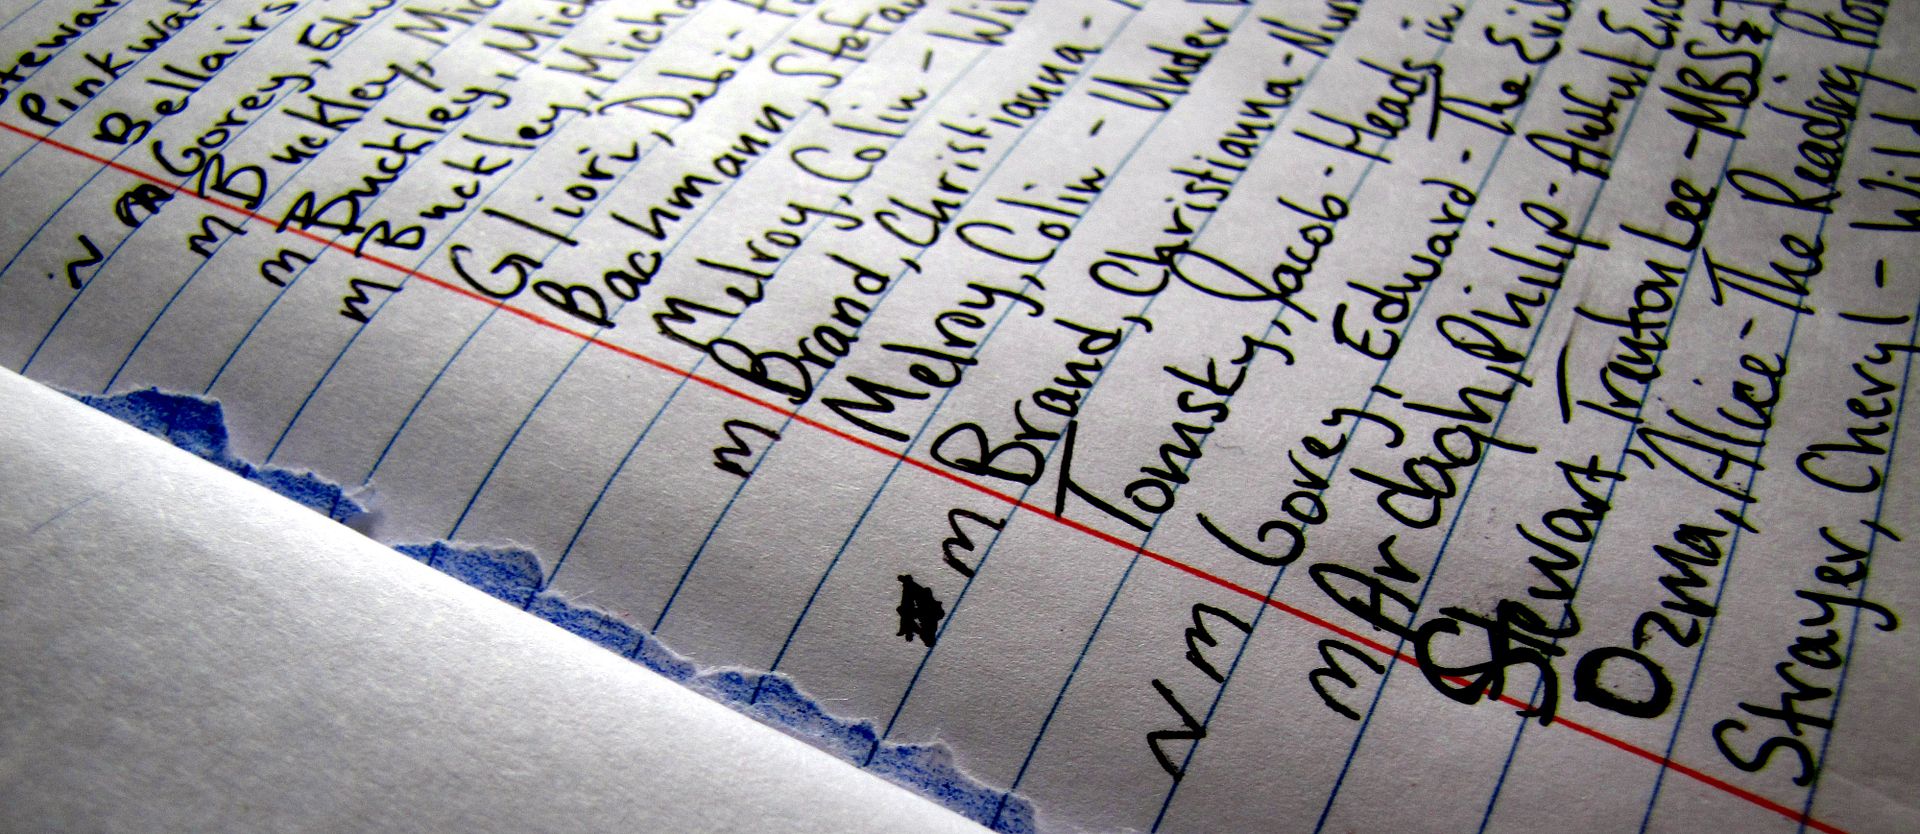 Stewar
Pinkwat
Bellairs
N Gorey, Edw
M Buckley, Mic
M Buckley, Mich
M Buckley, Micha
Gliori, Debi -
Bachmann, Stefan
Melroy, Colin - Wil
M Brand, Christianna -
Melroy, Colin - Under
M Brand, Christianna - Nur
Tomsky, Jacob - Heads in
N M Gorey, Edward - The Evil
M Ardagh, Philip - Awful End
Stewart, Trenton Lee - MBS
Ozma, Alice - The Reading Prom
Strayer, Cheryl - Wild,